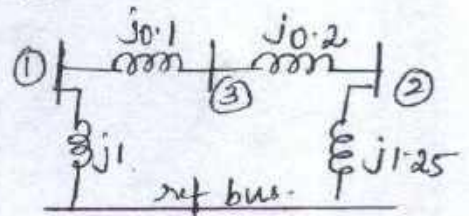 j0.1 j0.2
① ③ ②
j1 j1.25
ref bus.